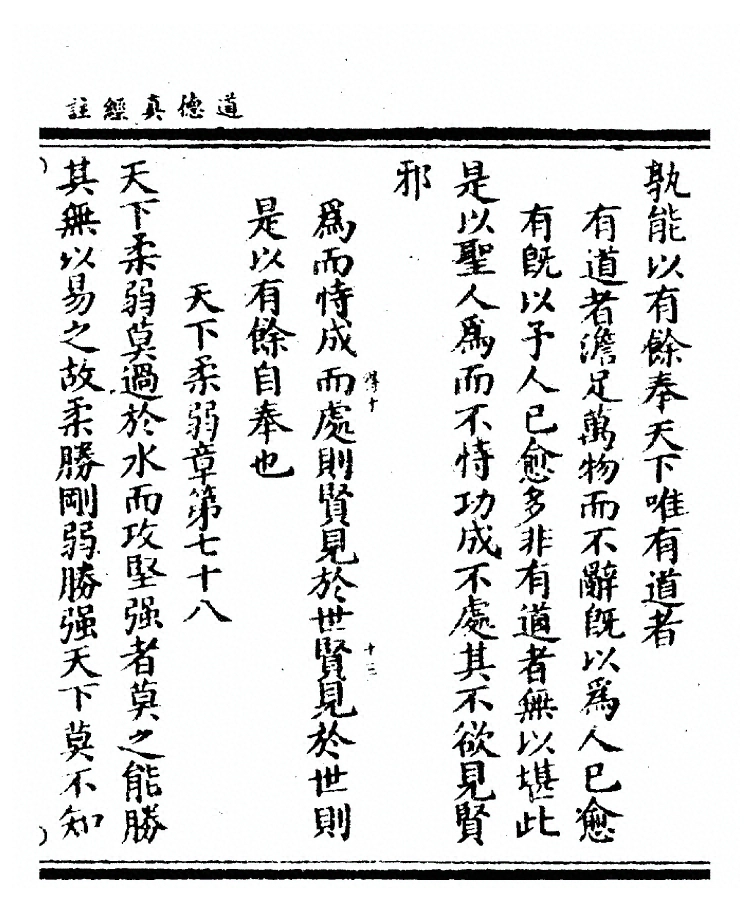 道德真經註
孰能以有餘奉天下唯有道者
有道者澹足萬物而不辭旣以爲人已愈
有旣以予人已愈多非有道者無以堪此
是以聖人爲而不恃功成不處其不欲見賢
邪
爲而恃成而處則賢見於世賢見於世則
是以有餘自奉也
天下柔弱章第七十八
天下柔弱莫過於水而攻堅强者莫之能勝
其無以易之故柔勝剛弱勝强天下莫不知